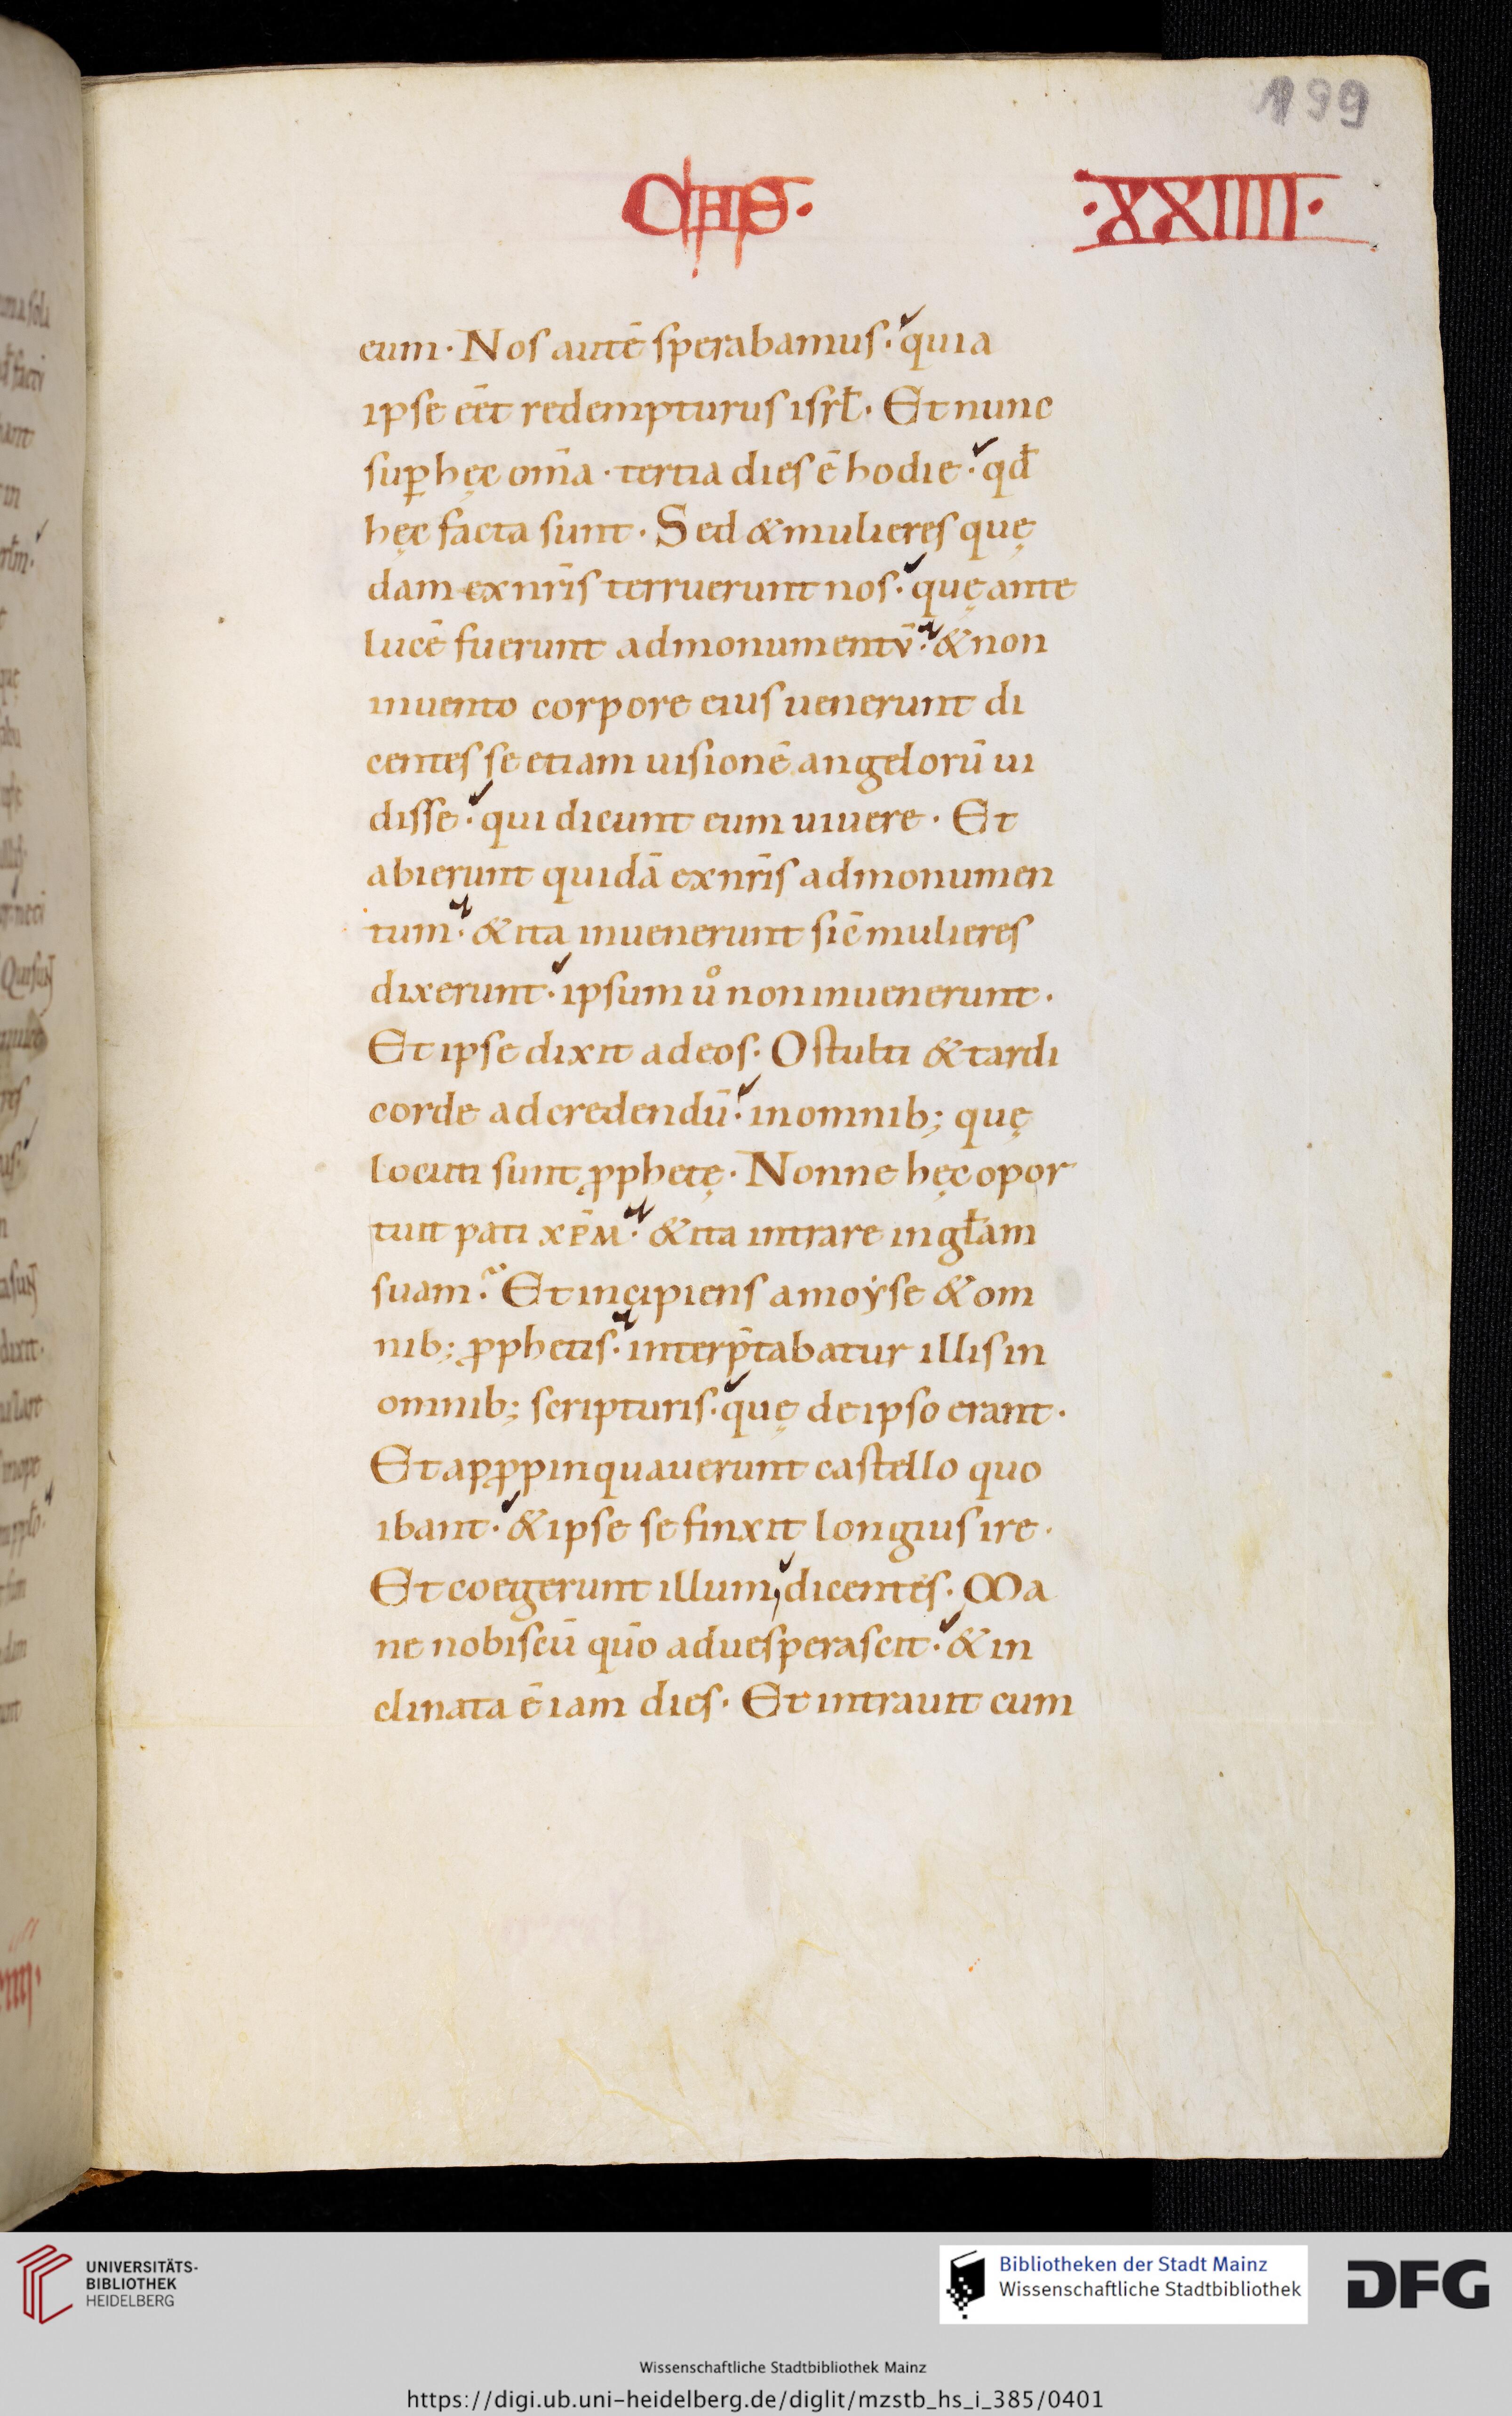 199
·XXIIII·
eum· Nos autē sperabamus· quia
ipse eēt redempturus isrł· Et nunc
suꝑ hęc om̄a· tertia dies ē hodie· qd̄
hęc facta sunt· Sed & mulieres quę
dam ex nr̄is terruerunt nos· quę ante
lucē fuerunt ad monumentv̄· & non
inuento corpore eius uenerunt di
centes se etiam uisionē angelorū ui
disse· qui dicunt eum uiuere· Et
abierunt quidā ex nr̄is ad monumen
tum· & ita inuenerunt sic̄ mulieres
dixerunt· ipsum uͦ non inuenerunt·
Et ipse dixit ad eos· O stulti & tardi
corde ad credendū· in omnib; quę
locuti sunt ꝓphetę· Nonne hęc opor
tuit pati xp̄m· & ita intrare in głam
suam· Et incipiens a moẏse & om
nib; ꝓphetis· interp̄tabatur illis in
omnib; scripturis· quę de ipso erant·
Et apꝓpinquauerunt castello quo
ibant· & ipse se finxit longius ire·
Et coegerunt illum, dicentes· Ma
ne nobiscū qūo aduesperascit· & in
clinata ē iam dies· Et intrauit cum
UNIVERSITÄTS-
BIBLIOTHEK
HEIDELBERG
Bibliotheken der Stadt Mainz
Wissenschaftliche Stadtbibliothek
DFG
Wissenschaftliche Stadtbibliothek Mainz
https://digi.ub.uni-heidelberg.de/diglit/mzstb_hs_i_385/0401